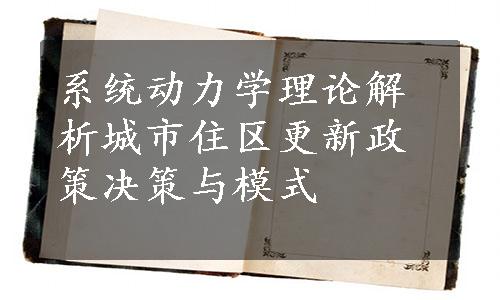 系统动力学理论解
析城市住区更新政
策决策与模式